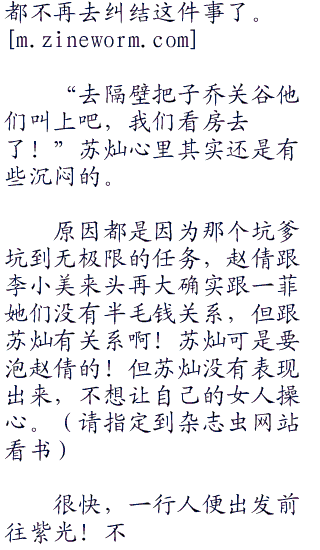 都不再去纠结这件事了。
[m.zineworm.com]
“去隔壁把子乔关谷他
们叫上吧，我们看房去
了！”苏灿心里其实还是有
些沉闷的。
原因都是因为那个坑爹
坑到无极限的任务，赵倩跟
李小美来头再大确实跟一菲
她们没有半毛钱关系，但跟
苏灿有关系啊！苏灿可是要
泡赵倩的！但苏灿没有表现
出来，不想让自己的女人操
心。（请指定到杂志虫网站
看书）
很快，一行人便出发前
往紫光！不